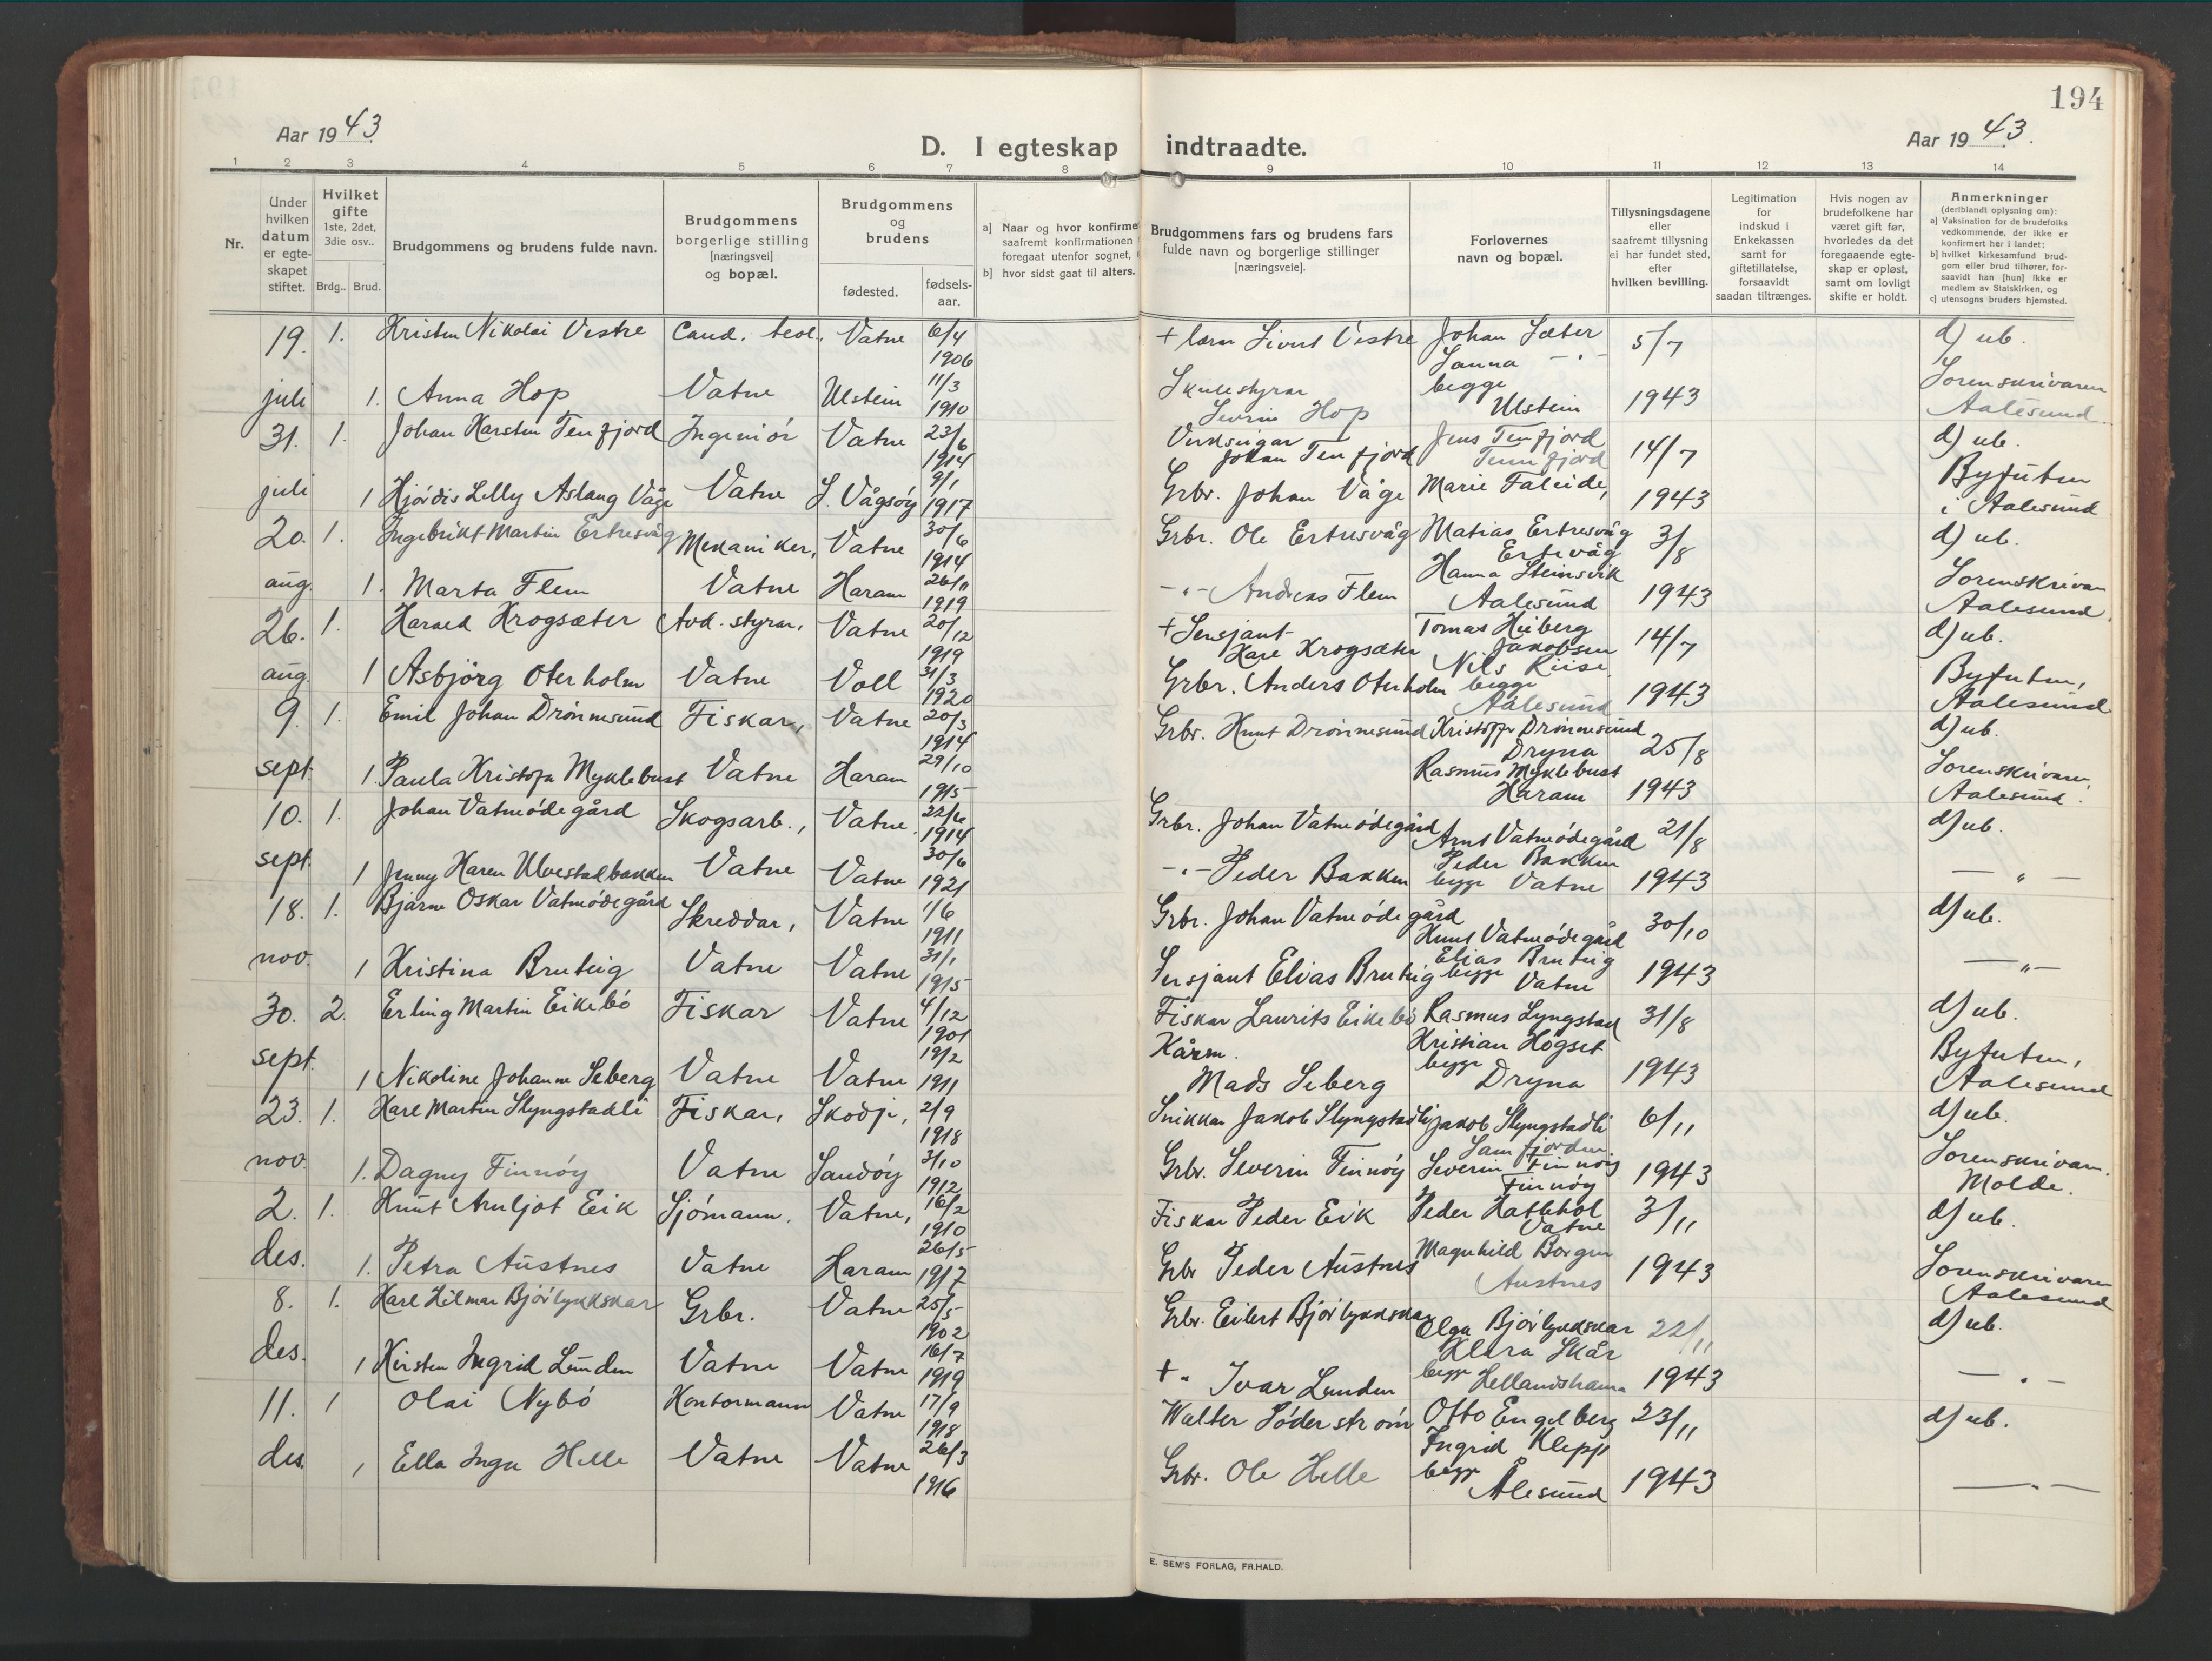 194
Aar 1943.
D. I egteskap indtraadte.
Aar 1943.
1 2 3 4 5 6 7 8 9 10 11 12 13 14
Nr.
Under hvilken datum er egteskapet stiftet.
Hvilket gifte 1ste, 2det, 3die osv..
Brdg.. Brud.
Brudgommens og brudens fulde navn.
Brudgommens borgerlige stilling [næringsvei] og bopæl.
Brudgommens og brudens
fødested.
fødselsaar.
a] Naar og hvor konfirme
saafremt konfirmationen
foregaat utenfor sognet,
b] hvor sidst gaat til alters.
Brudgommens fars og brudens fars fulde navn og borgerlige stillinger [næringsveie].
Forlovernes navn og bopæl.
Tillysningsdagene eller saafremt tillysning ei har fundet sted, efter hvilken bevilling.
Legitimation for indskud i Enkekassen samt for giftetillatelse, forsaavidt saadan tiltrænges.
Hvis nogen av brudefolkene har været gift før, hvorledes da det foregaaende egteskap er opløst, samt om lovligt skifte er holdt.
Anmerkninger (deriblandt oplysning om):
a) Vaksination for de brudefolks vedkommende, der ikke er konfirmert her i landet;
b) hvilket kirkesamfund brudgom eller brud tilhører, forsaavidt han [hun] ikke er medlem av Statskirken, og
c) utensogns bruders hjemsted.
19. 1. Kristen Nikolai Vestre Cand. teol., Vatne 6/4 1906 + lærer Sivert Vestre Johan Sæter Sanna — " — 5/7 d) ub.
juli 1. Anna Hop Vatne Ulstein 11/3 1910 Skulestyrar Severin Hop begge Ulstein 1943 Sorenskrivaren Aalesund.
31. 1. Johan Karsten Tenfjord Ingeniör Vatne 23/6 1914 Verkseigar Johan Tenfjord Jens Tenfjord Tennfjord 14/7 d) ub.
juli 1 Hjördis Lilly Aslaug Våge Vatne S. Vågsöy 9/1 1917 Grbr. Johan Våge Marie Faleide, 1943 Byfuten i Aalesund
20. 1. Ingebrikt Martin Ertresvåg Mekaniker, Vatne 30/6 1914 Grbr. Ole Ertresvåg Matias Ertresvåg Ertevåg 3/8 d) ub.
aug. 1. Marta Flem Vatne Haram 26/11 1919 — " — Andreas Flem Hanna Steinsvik Aalesund 1943 Sorenskrivar Aalesund.
26. 1. Harald Krogsæter Avd. styrar, Vatne 20/12 1919 + Sersjant Kare Krogsæter Tomas Hiberg Jakobsen 14/7 d) ub.
aug. 1 Asbjörg Oterholm Vatne Voll 31/3 1920 Grbr. Anders Oterholm Nils Riise begge Aalesund 1943 Byfuten, Aalesund
9. 1. Emil Johan Drönnesund Fiskar, Vatne 20/3 1914 Grbr. Knut Drönnesund Kristofer Drönnesund Dryna 25/8 d) ub.
sept. 1. Paula Kristofa Myklebust Vatne Haram 29/10 1915 Rasmus Myklebust Haram 1943 Sorenskrivaren, Aalesund.
10. 1. Johan Vatneödegård Skogsarb., Vatne 1914 Grbr. Johan Vatneödegård Arnt Vatneödegård 21/8 d) ub.
sept. 1 Jenny Karen Ulvestadbakken Vatne Vatne 30/6 1921 — " — Peder Bakken Peder Bakken begge Vatne 1943 — " —
18. 1. Bjarne Oskar Vatneödegård Skreddar, Vatne 1/6 1911 Grbr. Johan Vatneödegård Knut Vatneödegård 30/10 d) ub.
nov. 1 Kristina Bruteig Vatne Vatne 31/1 1915 Sersjant Elias Bruteig Elias Bruteig begge Vatne 1943 — " —
30. 2. Erling Martin Eikebö Fiskar Vatne 4/12 1901 Fiskar Laurits Eikebö Rasmus Lyngstad 31/8 d) ub.
sept. 1 Nikoline Johanne Seberg Vatne Vatne 19/2 1911 Kårm. Mads Seberg Kristian Högset begge Dryna 1943 Byfuten, Aalesund
23. 1. Karl Martin Slyngstadli Fiskar, Skodje, 2/9 1918 Snikkar Jakob Slyngstadli Jakob Slyngstadli Samfjorden. 6/11 d) ub.
nov. 1. Dagny Finnöy Vatne Sandöy 3/10 1912 Grbr. Severin Finnöy Severin Finnöy Finnöy 1943 Sorenskrivaren. Molde.
2. 1. Knut Arnljot Eik Sjömann, Vatne, 16/2 1910 Fiskar Peder Eik Peder Hatlehol Vatne 3/11 d) ub.
des. 1. Petra Austnes Vatne Haram 26/5 1917 Grbr Peder Austnes Magnhild Borgen Austnes 1943 Sorenskrivaren Aalesund
8. 1. Karl Hilmar Björlykkskar Grbr. Vatne 25/5 1902 Grbr. Eilert Björlykkskar Olga Björlykkskar 22/11 d) ub.
des. 1 Kirsten Ingrid Lunden Vatne Vatne 16/7 1919 + " Ivar Lunden Klara Skår begge Hellandshamn 1943 — " —
11. 1 Olai Nybö Kontormann Vatne 17/9 1918 Walter Söderström Otto Engelberg 23/11 d) ub.
des. 1 Ella Inga Helle Vatne Vatne 26/3 1916 Grbr. Ole Helle Ingrid Klepp begge Ålesund 1943 — " —
E. SEM'S FORLAG, FR.HALD.